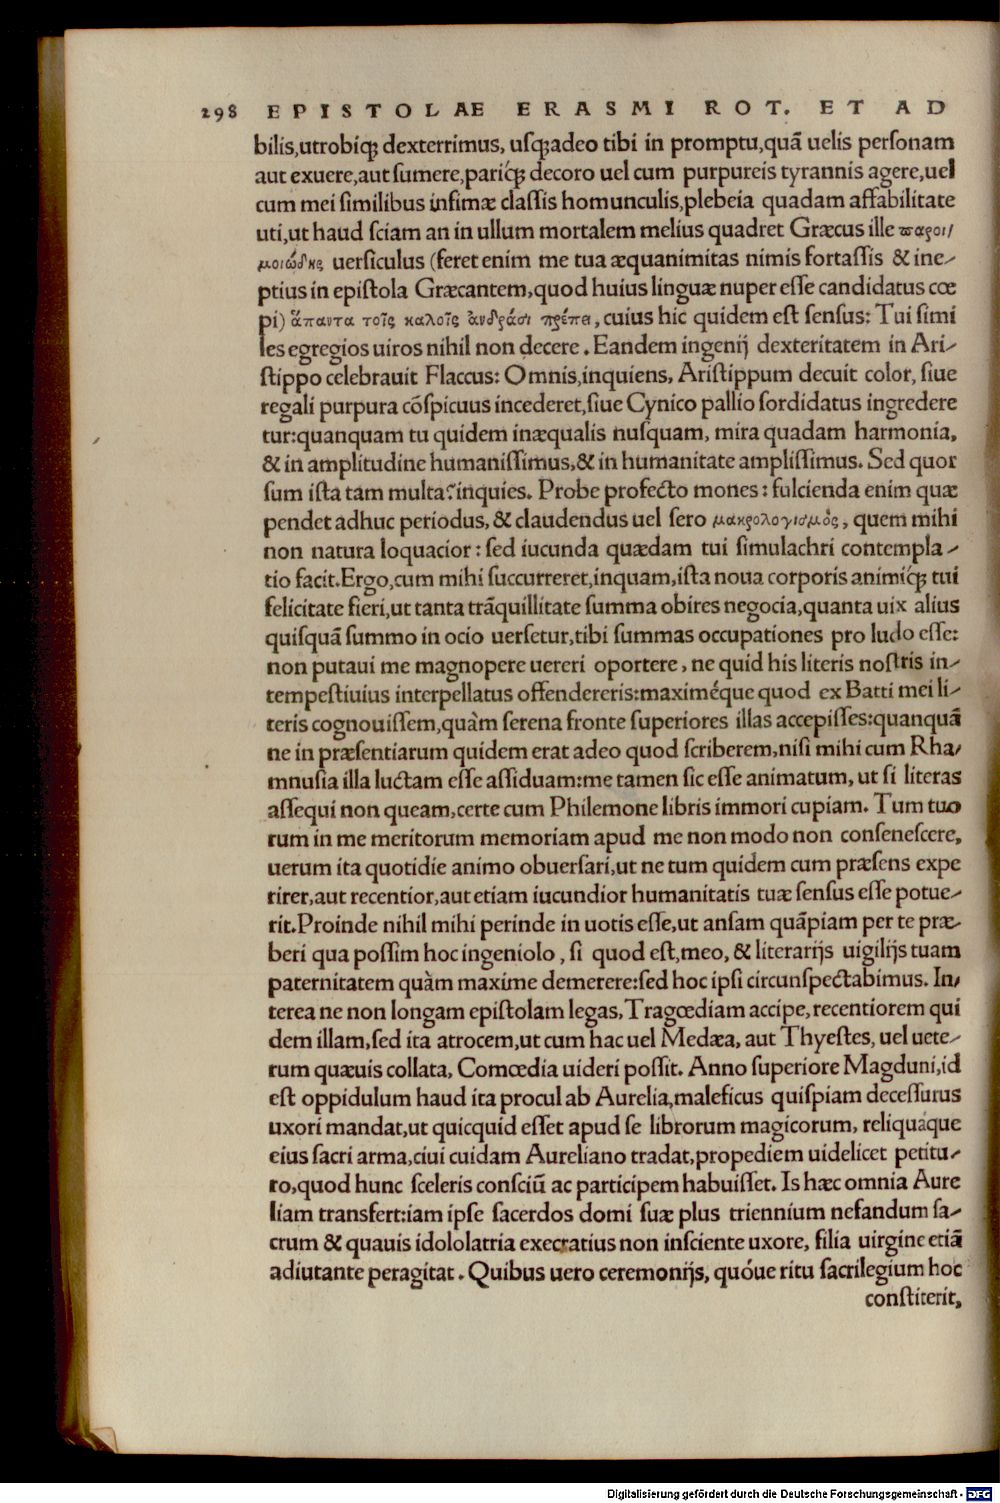 298 EPISTOLAE ERASMI ROT. ET AD
bilis,utrobiqꝫ dexterrimus, uſqꝫadeo tibi in promptu,quã uelis perſonam
aut exuere,aut ſumere,pariqꝫ decoro uel cum purpureis tyrannis agere,uel
cum mei ſimilibus infimæ claſſis homunculis,plebeia quadam affabilitate
uti,ut haud ſciam an in ullum mortalem melius quadret Græcus ille παροι/
μοιώδης uerſiculus (feret enim me tua æquanimitas nimis fortaſſis & ine⸗
ptius in epiſtola Græcantem,quod huius linguæ nuper eſſe candidatus cœ
pi) ἅπαντα τοῖς καλοῖς ἀνδράσι πρέπει, cuius hic quidem eſt ſenſus: Tui ſimi
les egregios uiros nihil non decere. Eandem ingenĳ dexteritatem in Ari⸗
ſtippo celebrauit Flaccus: Omnis,inquiens, Ariſtippum decuit color, ſiue
regali purpura cõſpicuus incederet,ſiue Cynico pallio ſordidatus ingredere
tur:quanquam tu quidem inæqualis nuſquam, mira quadam harmonia,
& in amplitudine humaniſſimus,& in humanitate ampliſſimus. Sed quor
ſum iſta tam multa?inquies. Probe profecto mones: fulcienda enim quæ
pendet adhuc periodus, & claudendus uel ſero μακρολογισμὸς, quem mihi
non natura loquacior: ſed iucunda quædam tui ſimulachri contempla⸗
tio facit.Ergo,cum mihi ſuccurreret,inquam,iſta noua corporis animiqꝫ tui
felicitate fieri,ut tanta trãquillitate ſumma obires negocia,quanta uix alius
quiſquã ſummo in ocio uerſetur,tibi ſummas occupationes pro ludo eſſe:
non putaui me magnopere uereri oportere, ne quid his literis noſtris in⸗
tempeſtiuius interpellatus offendereris:maximéque quod ex Batti mei li⸗
teris cognouiſſem,quàm ſerena fronte ſuperiores illas accepiſſes:quanquã
ne in præſentiarum quidem erat adeo quod ſcriberem,niſi mihi cum Rha/
mnuſia illa luctam eſſe aſſiduam:me tamen ſic eſſe animatum, ut ſi literas
aſſequi non queam,certe cum Philemone libris immori cupiam. Tum tuo
rum in me meritorum memoriam apud me non modo non conſeneſcere,
uerum ita quotidie animo obuerſari,ut ne tum quidem cum præſens expe
rirer,aut recentior,aut etiam iucundior humanitatis tuæ ſenſus eſſe potue⸗
rit.Proinde nihil mihi perinde in uotis eſſe,ut anſam quãpiam per te præ⸗
beri qua poſſim hoc ingeniolo, ſi quod eſt,meo, & literarĳs uigilĳs tuam
paternitatem quàm maxime demerere:ſed hoc ipſi circunſpectabimus. In/
terea ne non longam epiſtolam legas, Tragœdiam accipe,recentiorem qui
dem illam,ſed ita atrocem,ut cum hac uel Medæa, aut Thyeſtes, uel uete⸗
rum quæuis collata, Comœdia uideri poſſit. Anno ſuperiore Magduni,id
eſt oppidulum haud ita procul ab Aurelia,maleficus quiſpiam deceſſurus
uxori mandat,ut quicquid eſſet apud ſe librorum magicorum, reliquáque
eius ſacri arma,ciui cuidam Aureliano tradat,propediem uidelicet petitu⸗
ro,quod hunc ſceleris conſciũ ac participem habuiſſet. Is hæc omnia Aure
liam transfert:iam ipſe ſacerdos domi ſuæ plus triennium nefandum ſa⸗
crum & quauis idololatria execratius non inſciente uxore, filia uirgine etiã
adiutante peragitat. Quibus uero ceremonĳs, quóue ritu ſacrilegium hoc
conſtiterit,
Digitalisierung gefördert durch die Deutsche Forschungsgemeinschaft - DFG